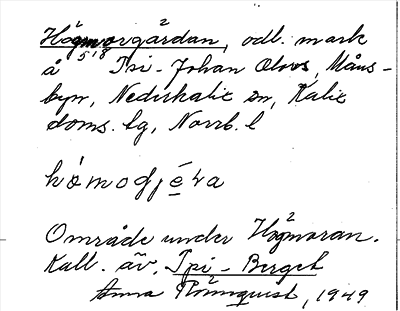 Högmorgårdan, odl. mark
å 5:8 Pri-Johan Olovs, Måns-
byn, Nederkalix sn, Kalix
doms. lg, Norrb. l
hömogjéṷa
Område under Högmoran.
Kall. äv. Ipi-Berget
Anna Rönnquist, 1949